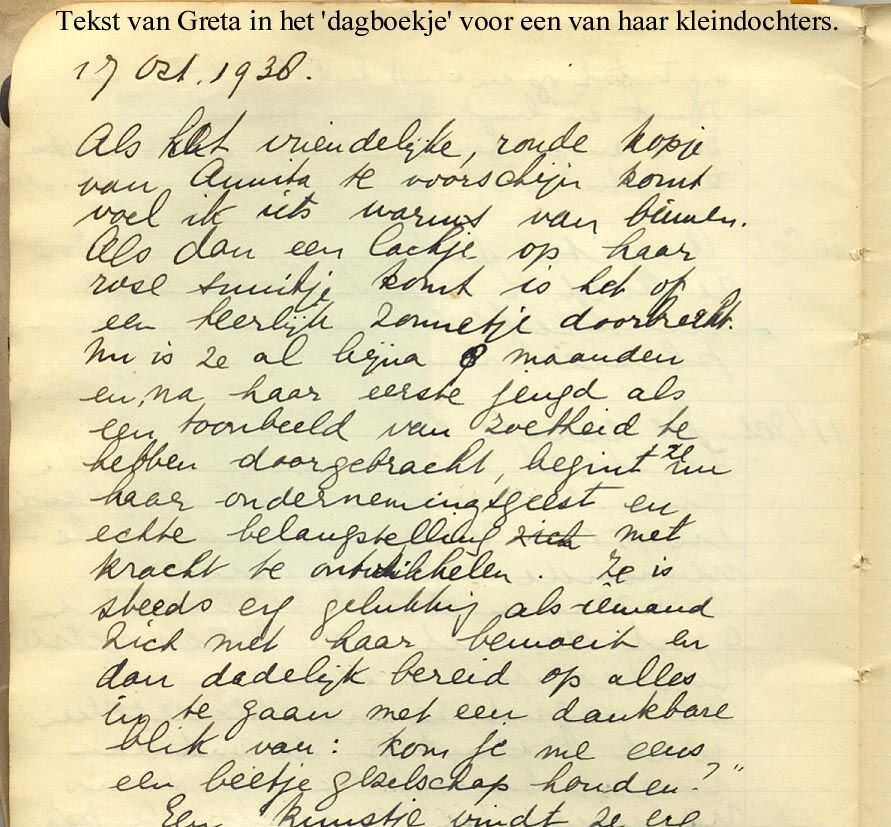 Tekst van Greta in het 'dagboekje' voor een van haar kleindochters.
17 Oct. 1938.
Als het vriendelijke, ronde kopje
van Annita te voorschijn komt
voel ik iets warms van binnen.
Als dan een lachje op haar
rose snuitje komt is het of
een heerlijk zonnetje doorbreekt.
Nu is ze al bijna 8 maanden
en, na haar eerste jeugd als
een toonbeeld van zoetheid te
hebben doorgebracht, begint ze nu
haar ondernemingsgeest en
echte belangstelling zich met
kracht te ontwikkelen. Ze is
steeds erg gelukkig als iemand
zich met haar bemoeit en
dan dadelijk bereid op alles
in te gaan met een dankbare
blik van: kom je me eens
een beetje gezelschap houden?"
Een kunstje vindt ze erg